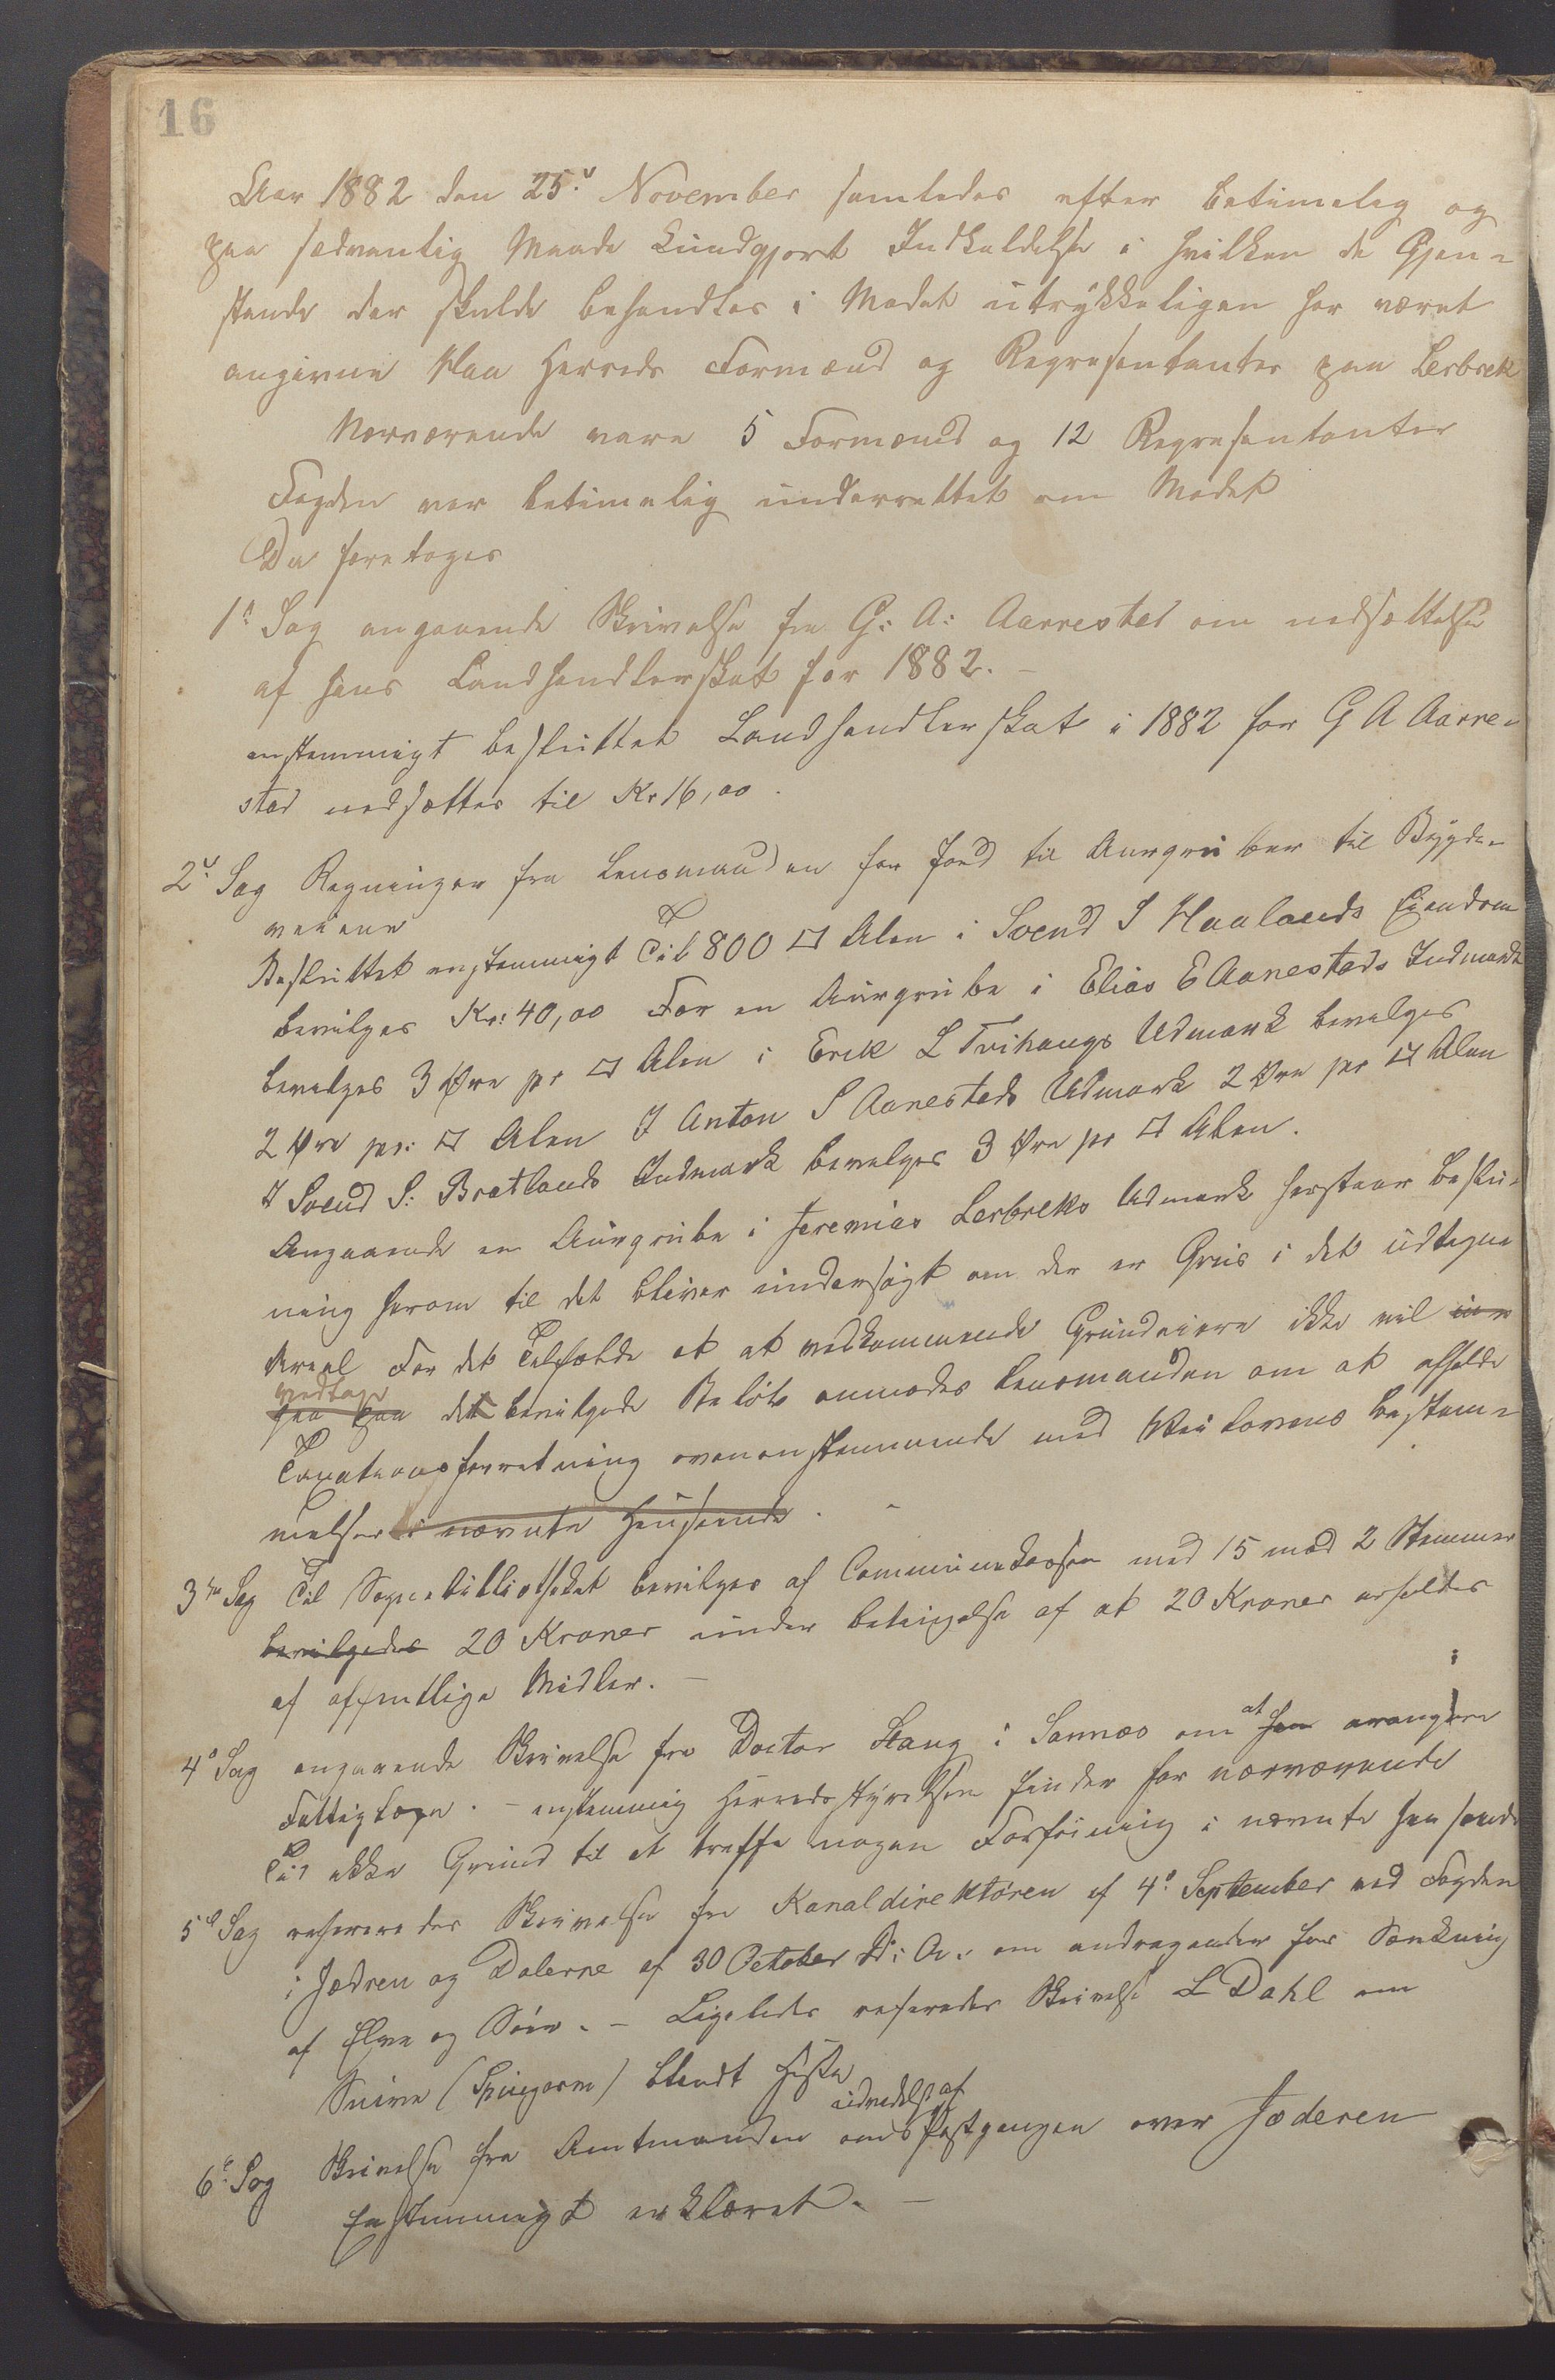 16
Aar 1882 den 25de November samledes efter betimelig og
paa sædvanlig Maade Kundgjort Indkaldelse i hvilken de Gjen-
stande der skulde behandles i Mødet udtrykkeligen har været
angivne Haa Herreds Formænd og Repræsentanter paa Lerbrek
Nærværende vare 5 Formænd og 12 Repræsentanter
Fogden var betimelig underrettet om Mødet
Da foretoges
1ste Sag angaaende Skrivelse fra G: A: Aarrestad om nedsættelse
af hans Landhandlerskat for 1882. -
enstemmigt besluttet Landhandlerskat i 1882 for G A Aarre-
stad nedsættes til Kr 16,00.
2den Sag Regninger fra Lensmanden for Jord til Aurgruber til Bygde-
veiene
Besluttet enstemmigt Til 800 □ Alen i Svend S Haalands Eiendom
bevilges Kr: 40,00 For en Aurgrube i Elias E Aanestads Indmark
bevilges 3 Øre pr □ Alen i Erik L Tvihaugs Udmark bevilges
2 Øre pr: □ Alen I Anton S Aanestads Udmark 2 Øre pr □ Alen
I Svend S: Bratlands Indmark bevilges 3 Øre pr □ Alen.
Angaaende en Aurgrube i Jeremias Lerbreks Udmark henstaar beslut-
ning herom til det bliver undersøgt om der er Grus i det udtagne
Areal For det Tilfælde at at vedkommende Grundeiere ikke vil
vedtage
det bevilgede Beløb anmodes Lensmanden om at afholde
Taxationsforretning overensstemmende med Veilovens bestem-
melser i nævnte Henseende.
3die Sag Til Sognebibliotheket bevilges af Communekassen med 15 mod 2 Stemmer
bevilgedes 20 Kroner under betingelse af at 20 Kroner erholdes
af offentlige Midler. -
4de Sag angaaende Skrivelse fra Doctor Stang i Sannæs om at han arangere
Fattiglæge. - enstemmig Herredsstyrelsen finder for nærværende
Tid ikke Grund til at treffe nogen Forføining i nævnte Henseende
5te Sag refereredes Skrivelse fra Kanaldirektøren af 4de September ved Fogden
i Jædren og Dalerne af 30 October D: A: om andragender for Sænkning
af Elve og Søer. - Ligeledes refereredes Skrivelse L Dahl om
Snive (Springorm) blandt Heste
udvidelse af
6te Sag Skrivelse fra Amtmanden om Postgangen over Jæderen
Enstemmigt erklæret. -